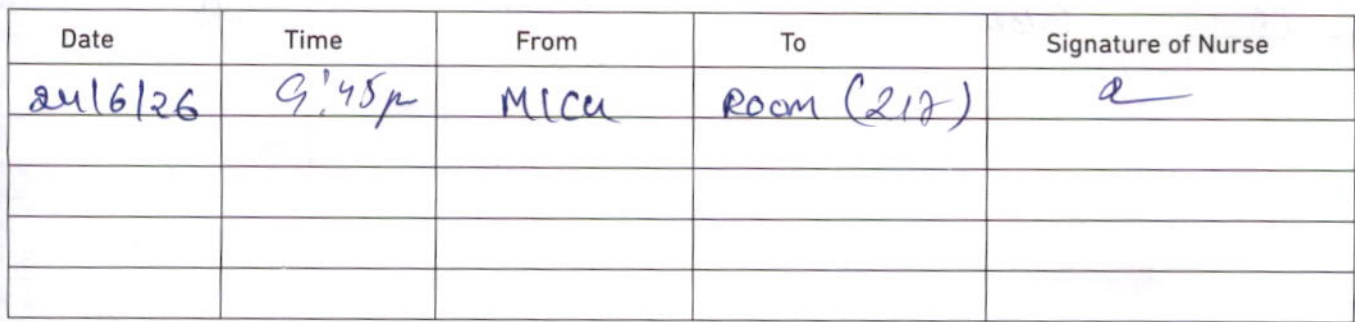 Date Time From To Signature of Nurse
24/6/26 9:45p MICU Room (217)